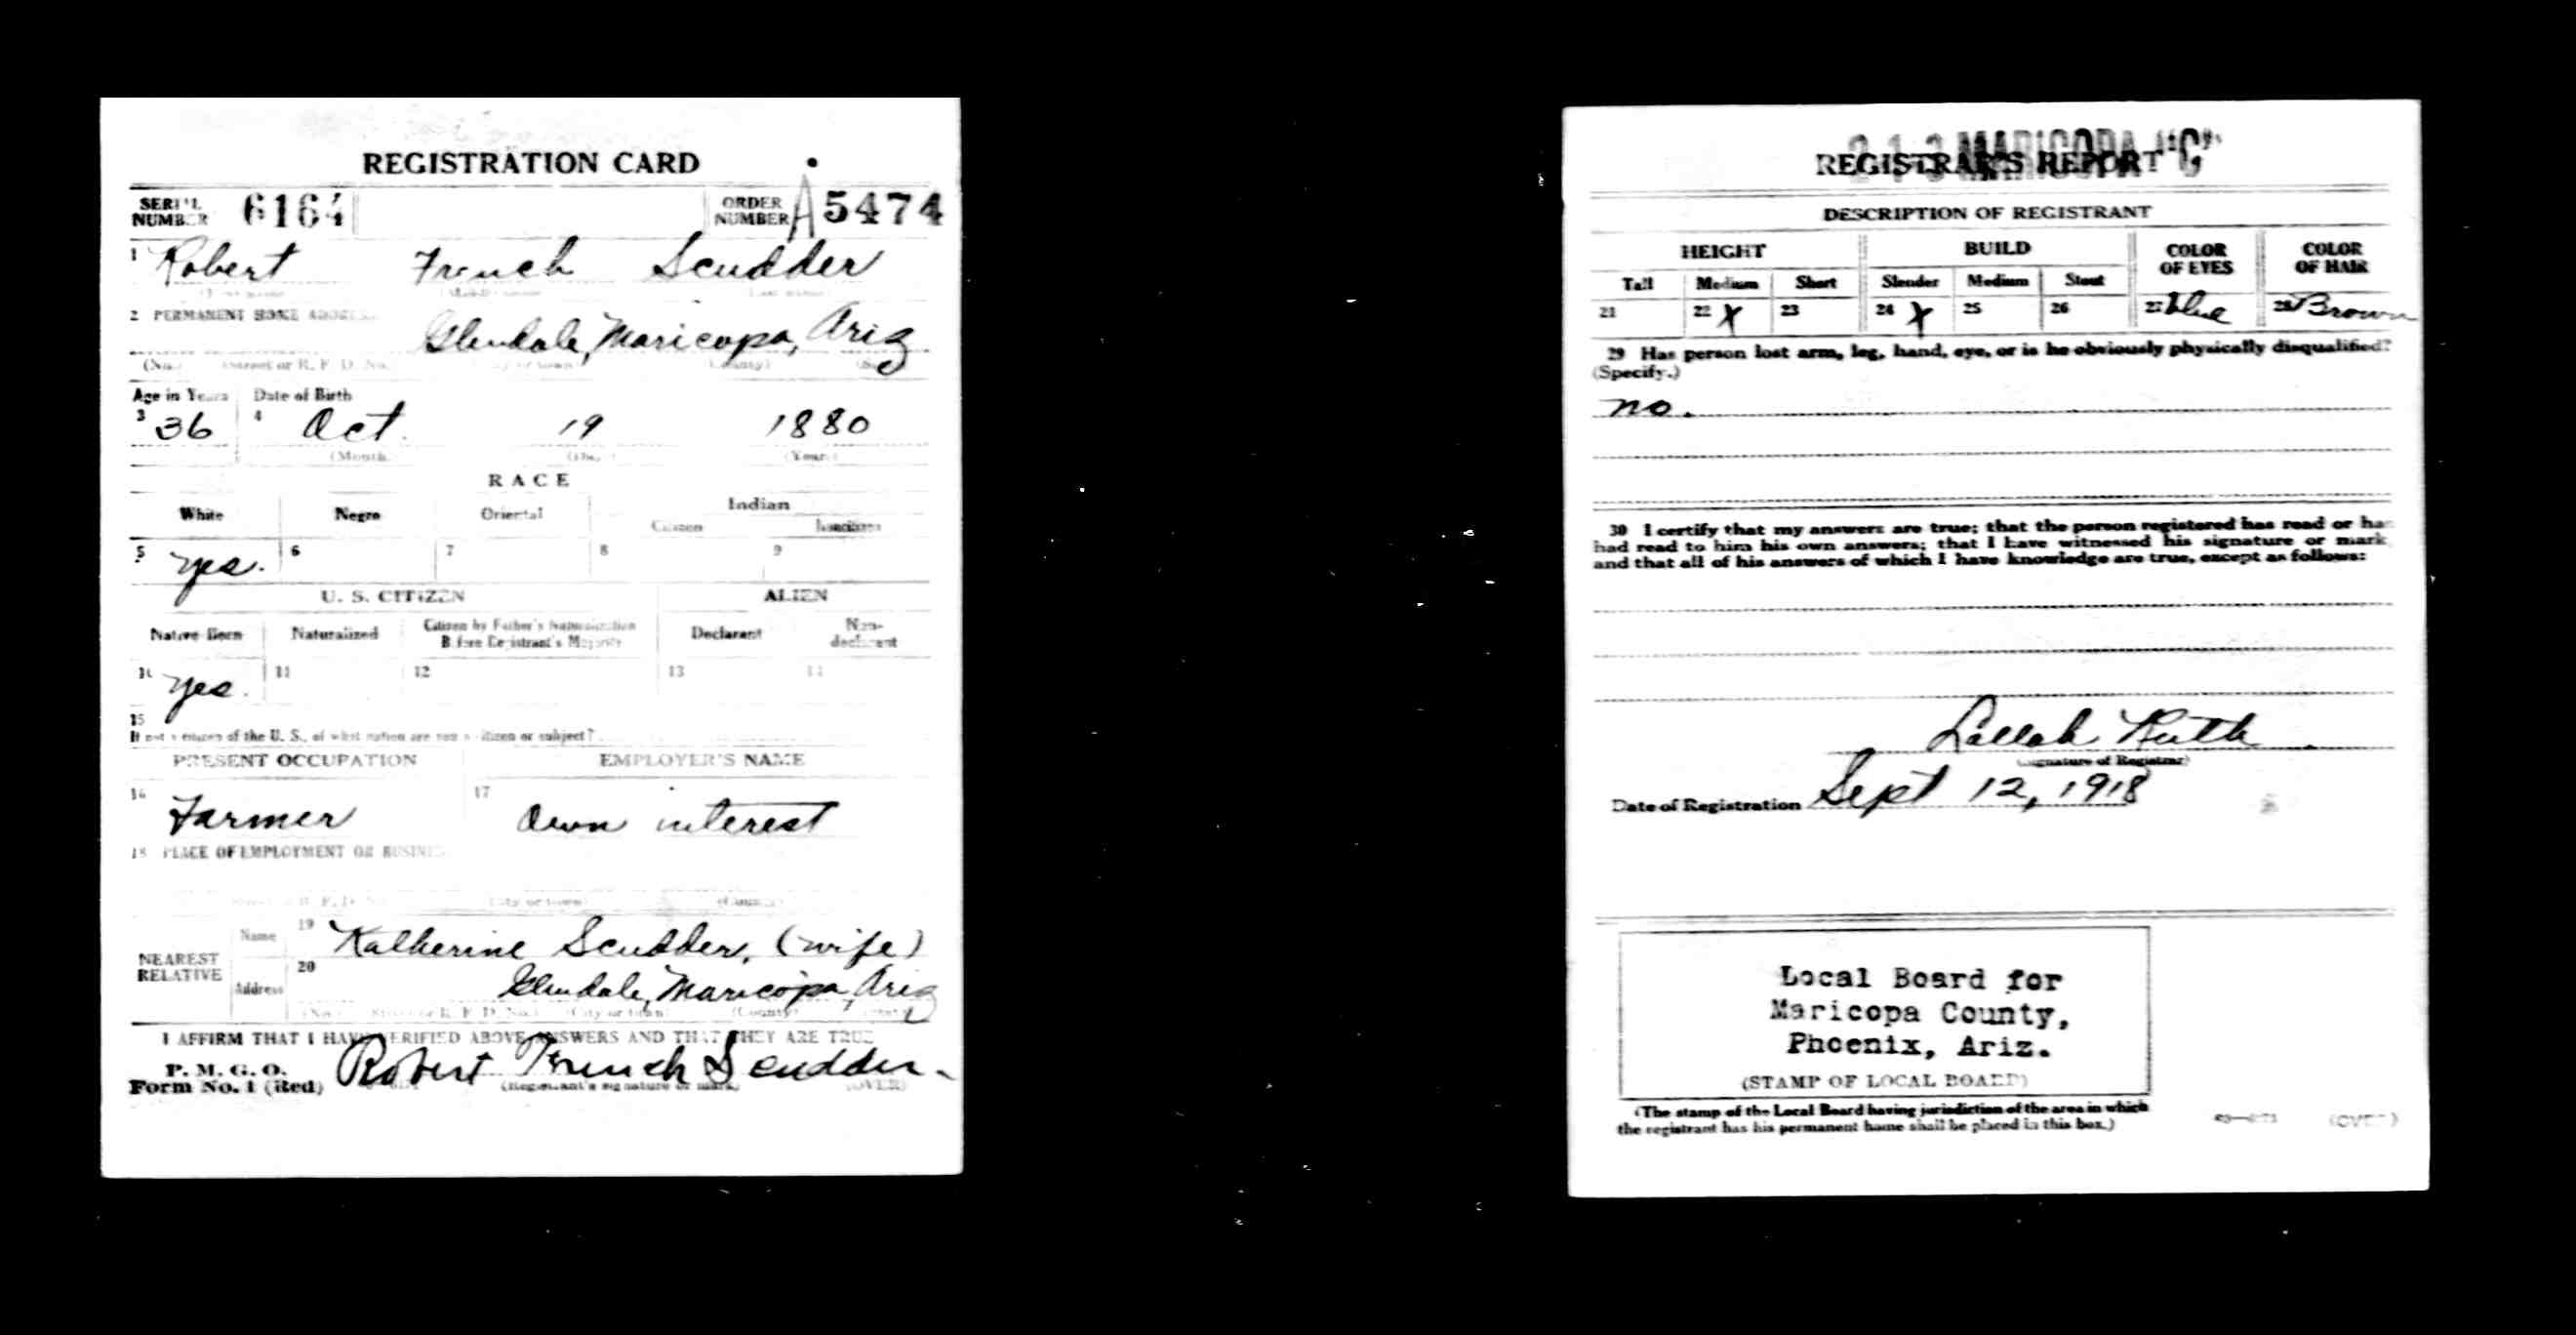 REGISTRATION CARD
SERIAL NUMBER 6164 ORDER NUMBER A 5474
1 Robert French Scudder
2 PERMANENT HOME ADDRESS
Glendale, Maricopa, Ariz
Age in Years Date of Birth
3 36 4 Oct. 19 1880
(Month) (Day) (Year)
RACE
White Negro Oriental Indian
Citizen Noncitizen
5 yes. 6 7 8 9
U. S. CITIZEN ALIEN
Native Born Naturalized Citizen by Father's Naturalization Before Registrant's Majority Declarant Non-declarant
10 yes. 11 12 13 14
15
If not a citizen of the U. S., of what nation are you a citizen or subject?
PRESENT OCCUPATION EMPLOYER'S NAME
16 Farmer 17 Own interest
18 PLACE OF EMPLOYMENT OR BUSINESS
(City or town) (County)
NEAREST RELATIVE
Name 19 Katherine Scudder, (wife)
Address 20 Glendale, Maricopa, Ariz
(No.) (Street or R. F. D. No.) (City or town) (County) (State)
I AFFIRM THAT I HAVE VERIFIED ABOVE ANSWERS AND THAT THEY ARE TRUE
P. M. G. O.
Form No. 1 (Red) Robert French Scudder
(Registrant's signature or mark) (OVER)
213 MARICOPA "C"
REGISTRAR'S REPORT
DESCRIPTION OF REGISTRANT
HEIGHT BUILD COLOR OF EYES COLOR OF HAIR
Tall Medium Short Slender Medium Stout
21 22 X 23 24 X 25 26 27 blue 28 Brown
29 Has person lost arm, leg, hand, eye, or is he obviously physically disqualified?
(Specify.)
no.
30 I certify that my answers are true; that the person registered has read or has
had read to him his own answers; that I have witnessed his signature or mark
and that all of his answers of which I have knowledge are true, except as follows:
Lallah Ruth
(Signature of Registrar)
Date of Registration Sept 12, 1918
Local Board for
Maricopa County,
Phoenix, Ariz.
(STAMP OF LOCAL BOARD)
(The stamp of the Local Board having jurisdiction of the area in which
the registrant has his permanent home shall be placed in this box.)
(OVER)